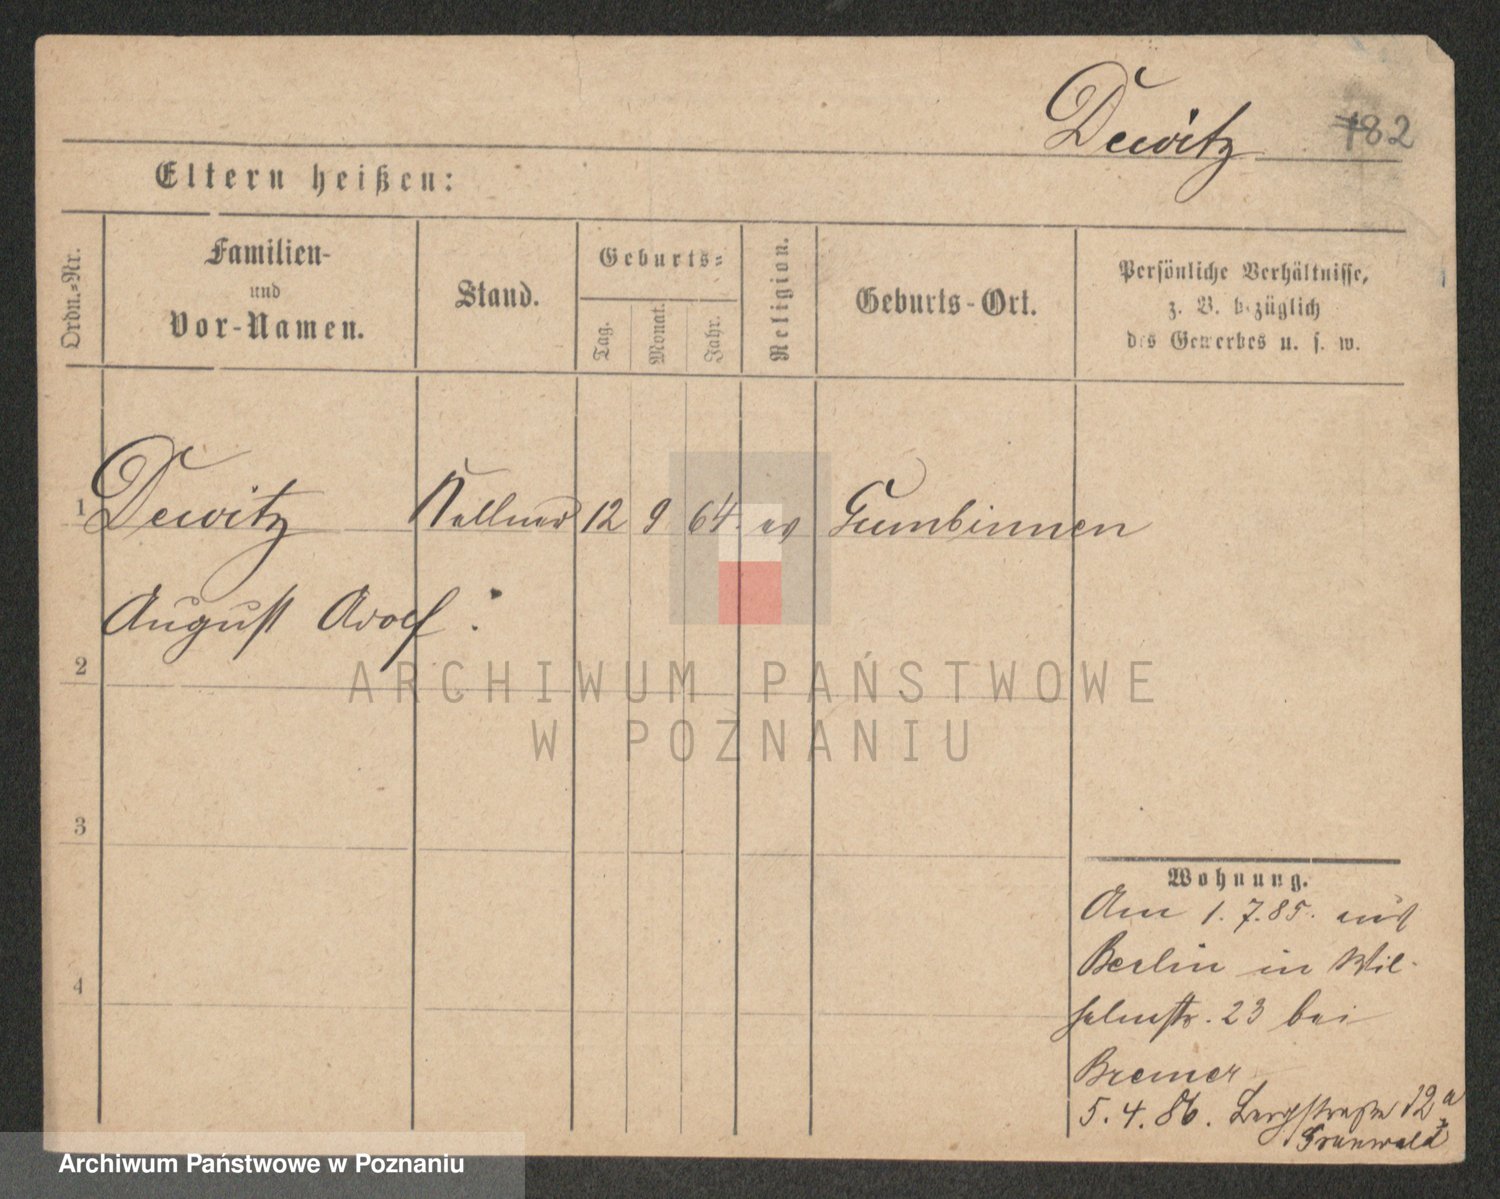 Dewitz 182
Eltern heißen:
Ordn.=Nr.
Familien-
und
Vor-Namen.
Stand.
Geburts=
Tag.
Monat.
Jahr.
Religion.
Geburts-Ort.
Persönliche Verhältnisse,
z. B. bezüglich
des Gewerbes u. s. w.
1 Dewitz Kellner 12 9 64. ev Gumbinnen
August Adolf
2
ARCHIWUM PAŃSTWOWE
W POZNANIU
3
Wohnung.
Am 1. 7. 85. aus
Berlin in Wil-
helmstr. 23 bei
4
Bremer
5. 4. 86. Bergstraße 12a
Grunwald
Archiwum Państwowe w Poznaniu